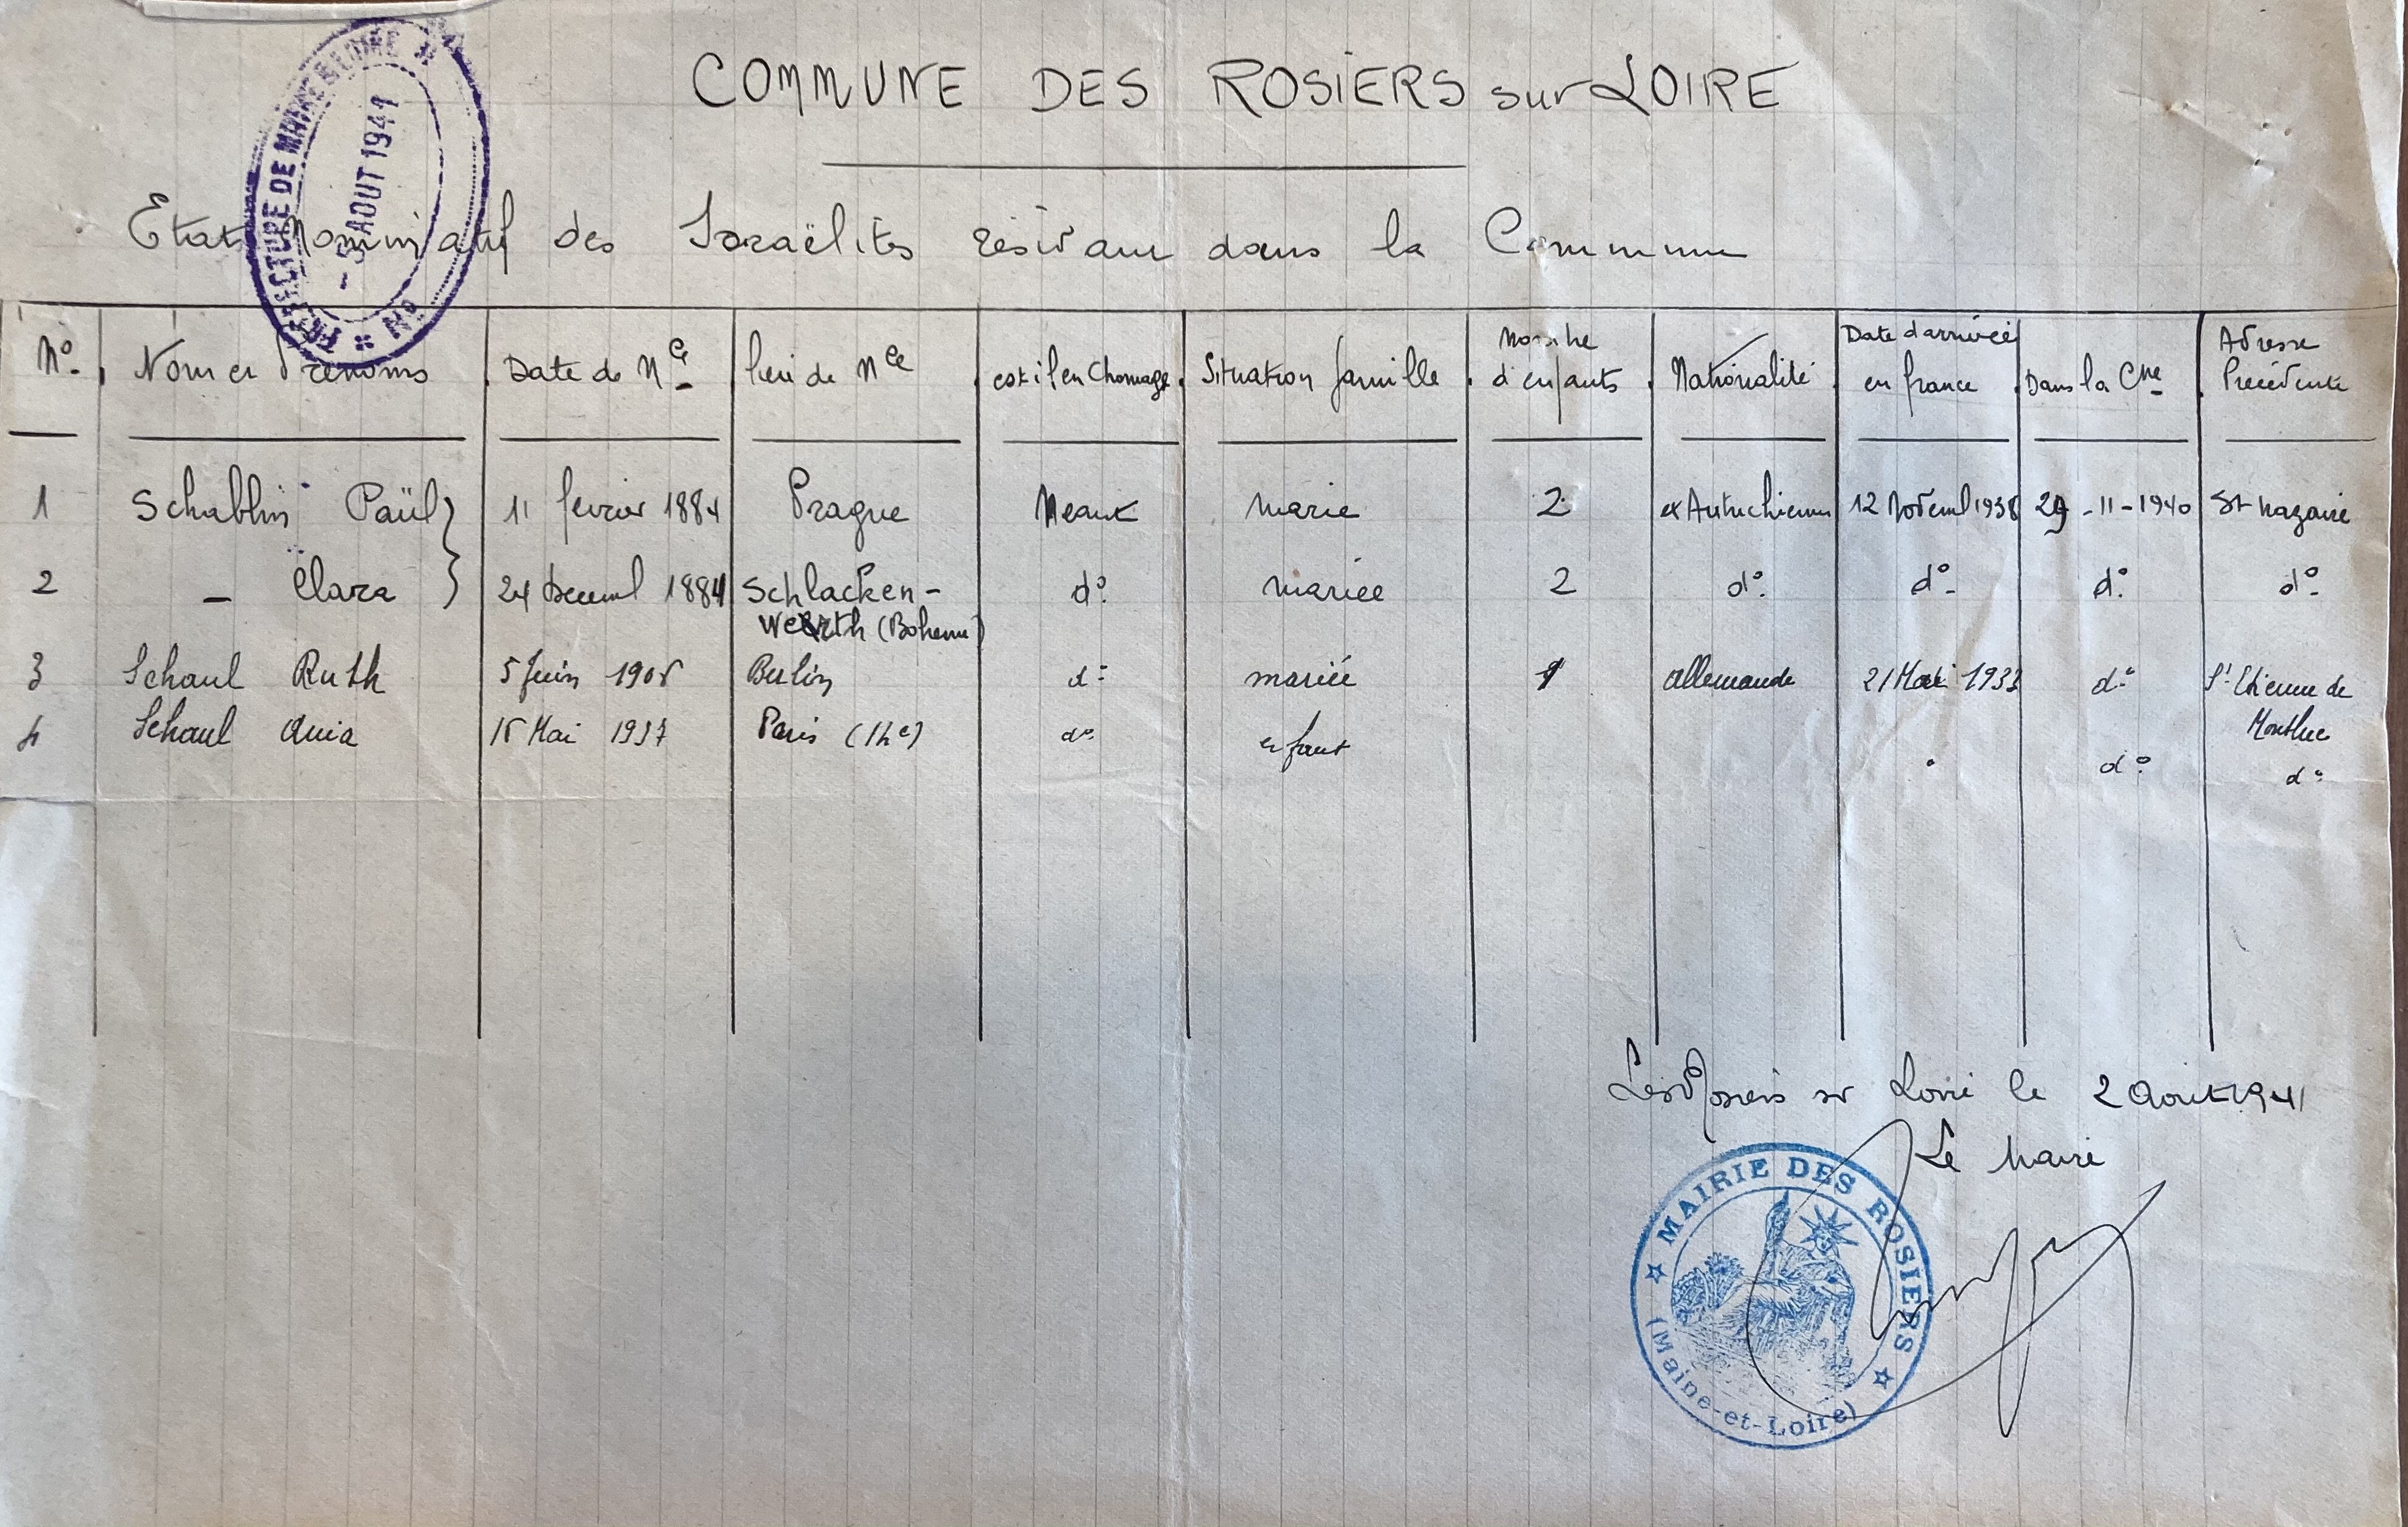 PREFECTURE DE MAINE & LOIRE
- 5 AOUT 1941
No
COMMUNE DES ROSIERS sur LOIRE
Etat Nominatif des Israëlites résidant dans la Commune
No. Nom et Prénoms Date de Nce lieu de Nce est il en Chomage Situation famille Nombre d'enfants Nationalité Date d'arrivée en france Dans la Cne Adresse Précédente
1 Schablin Paül 11 fevrier 1884 Prague Neant marie 2 ex Autrichienne 12 Novemb 1938 29-11-1940 St Nazaire
2 - Clara 24 Decemb 1884 Schlacken- do. mariée 2 do. do. do. do.
Werth (Boheme)
3 Schaul Ruth 5 Juin 1908 Berlin do. mariée 1 allemande 21 Mai 1933 do. St. Etienne de
Montluc
4 Schaul Ania 15 Mai 1937 Paris (14e) do. enfant do. do.
Les Rosiers sr Loire le 2 Aout 1941
Le Maire
MAIRIE DES ROSIERS
(Maine-et-Loire)